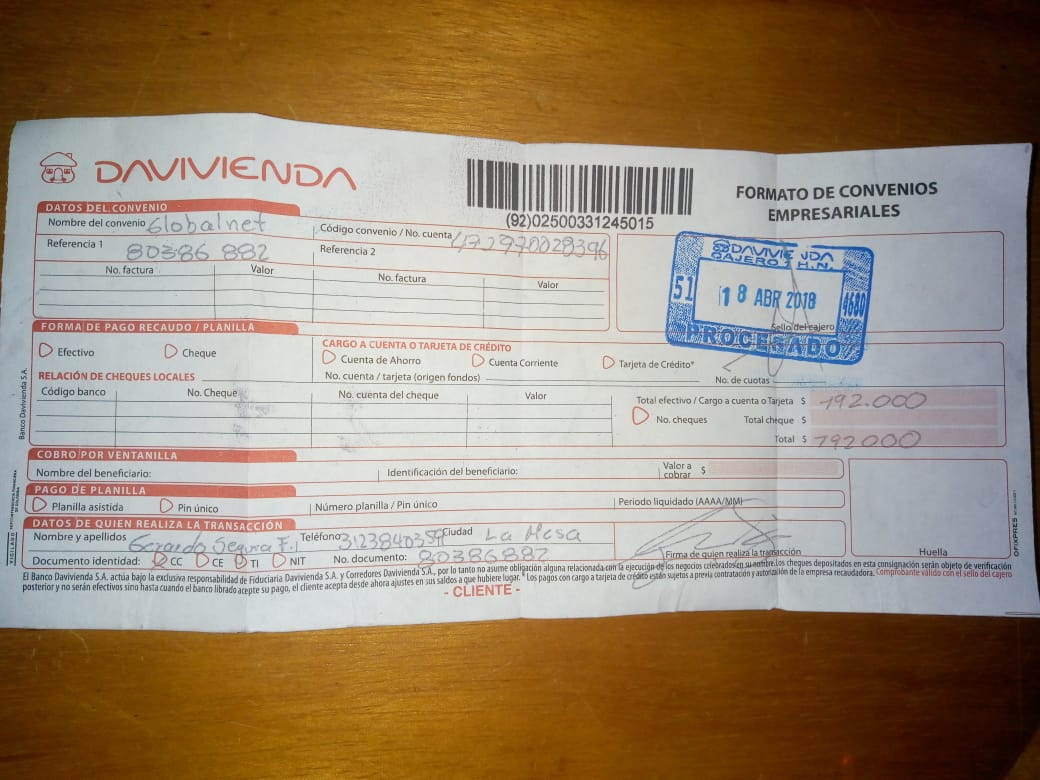 DAVIVIENDA
(92)02500331245015
FORMATO DE CONVENIOS
EMPRESARIALES
DATOS DEL CONVENIO
Nombre del convenio Globalnet
Código convenio / No. cuenta
Referencia 1 80386 882
Referencia 2
No. factura Valor No. factura Valor
DAVIVIENDA
CAJERO 1 H.N.
51 18 ABR 2018 4680
Sello del cajero
PROCESADO
FORMA DE PAGO RECAUDO / PLANILLA
Efectivo Cheque
CARGO A CUENTA O TARJETA DE CRÉDITO
Cuenta de Ahorro Cuenta Corriente Tarjeta de Crédito*
No. cuenta / tarjeta (origen fondos) No. de cuotas
RELACIÓN DE CHEQUES LOCALES
Código banco No. Cheque No. cuenta del cheque Valor
Total efectivo / Cargo a cuenta o Tarjeta $ 192.000
No. cheques Total cheque $
Total $ 192000
COBRO POR VENTANILLA
Nombre del beneficiario: Identificación del beneficiario: Valor a cobrar $
PAGO DE PLANILLA
Planilla asistida Pin único Número planilla / Pin único Periodo liquidado (AAAA/MM)
DATOS DE QUIEN REALIZA LA TRANSACCIÓN
Nombre y apellidos Gerardo Segura F. Teléfono Ciudad La Mesa
Documento identidad: CC CE TI NIT No. documento: 80386882
Firma de quien realiza la transacción
Huella
El Banco Davivienda S.A. actúa bajo la exclusiva responsabilidad de Fiduciaria Davivienda S.A. y Corredores Davivienda S.A., por lo tanto no asume obligación alguna relacionada con la ejecución de los negocios celebrados en su nombre. Los cheques depositados en esta consignación serán objeto de verificación
posterior y no serán efectivos sino hasta cuando el banco librado acepte su pago, el cliente acepta desde ahora ajustes en sus saldos a que hubiere lugar. * Los pagos con cargo a tarjeta de crédito están sujetos a previa contratación y autorización de la empresa recaudadora. Comprobante válido con el sello del cajero
- CLIENTE -
Banco Davivienda S.A.